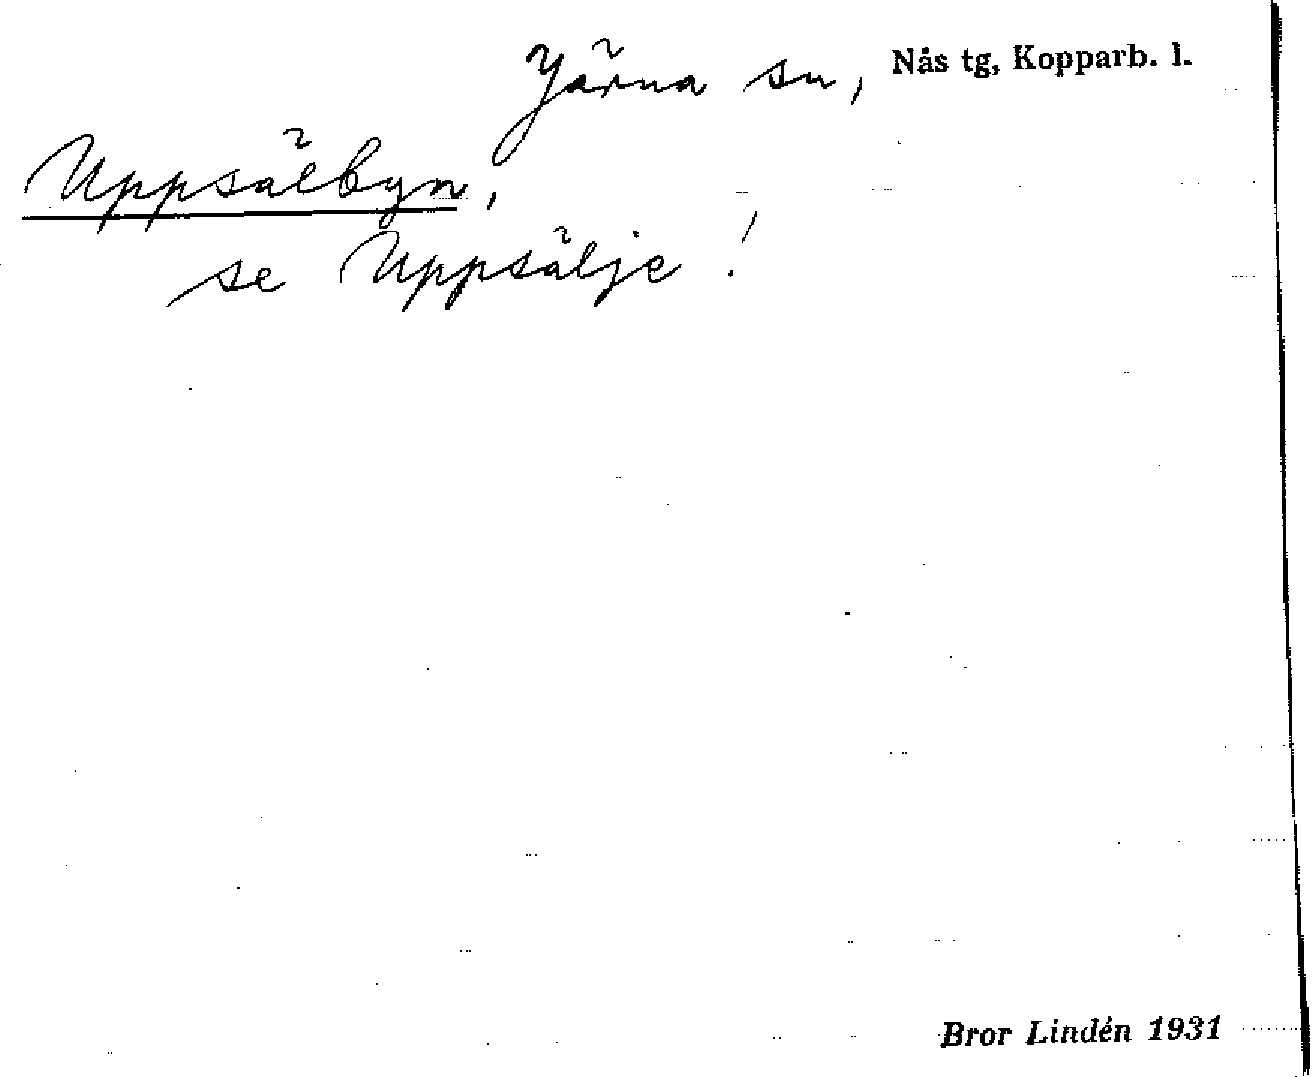 Järna sn, Nås tg, Kopparb. l.
Uppsälbyn,
se Uppsälje!
Bror Lindén 1931